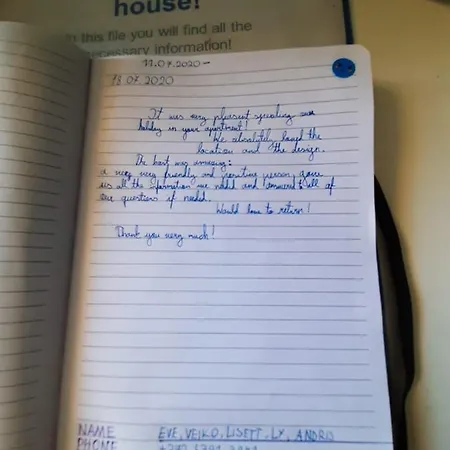 house!
this file you will find all the
necessary information!
11.07.2020-
18.07.2020
It was very pleasant spending our
holiday in your apartment!
We absolutely loved the
location and the design.
The host was amazing:
a very very friendly and positive person, gave
us all the information we needed and answered all of
our questions if needed.
Would love to return!
Thank you very much!
NAME EVE, VEIKO, LISETT, LY, ANDRO
PHONE